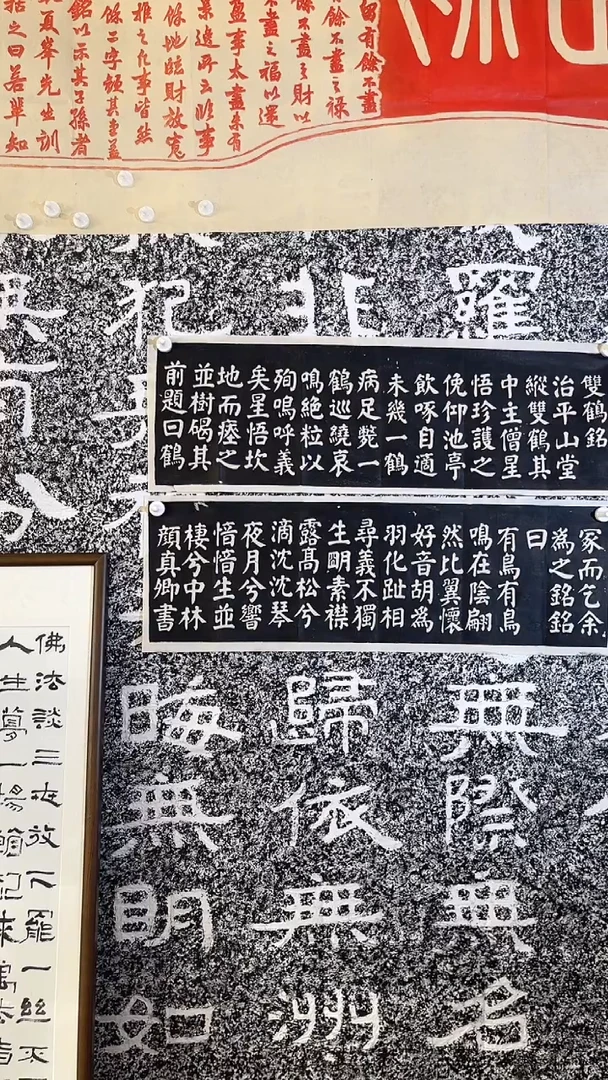 留有餘不盡
餘不盡之祿
餘不盡之財以
不盡之福以還
盈事太盡未有
景逸所云臨事
餘地臨財放寬
推之凡事皆然
銘以示其子孫者
夏峯先生訓
括之曰若輩知
羅
非
犯
雙鶴銘
治平山堂
縱雙鶴其
中主僧星
悟珍護之
俛仰池亭
飲啄自適
未幾一鶴
病足斃一
鶴巡繞哀
鳴絕粒以
殉嗚呼義
矣星悟坎
地而瘞之
並樹碣其
前題曰鶴
冢而乞余
為之銘銘
曰
有鳥有鳥
鳴在陰翩
然比翼懷
好音胡為
羽化趾相
尋義不獨
生朙素襟
露高松兮
滴沈沈琴
夜月兮響
愔愔生並
棲兮中林
顏真卿書
無際無名
歸依無洲
晦無明如
佛法談三世放下罷一絲不
人生夢一場